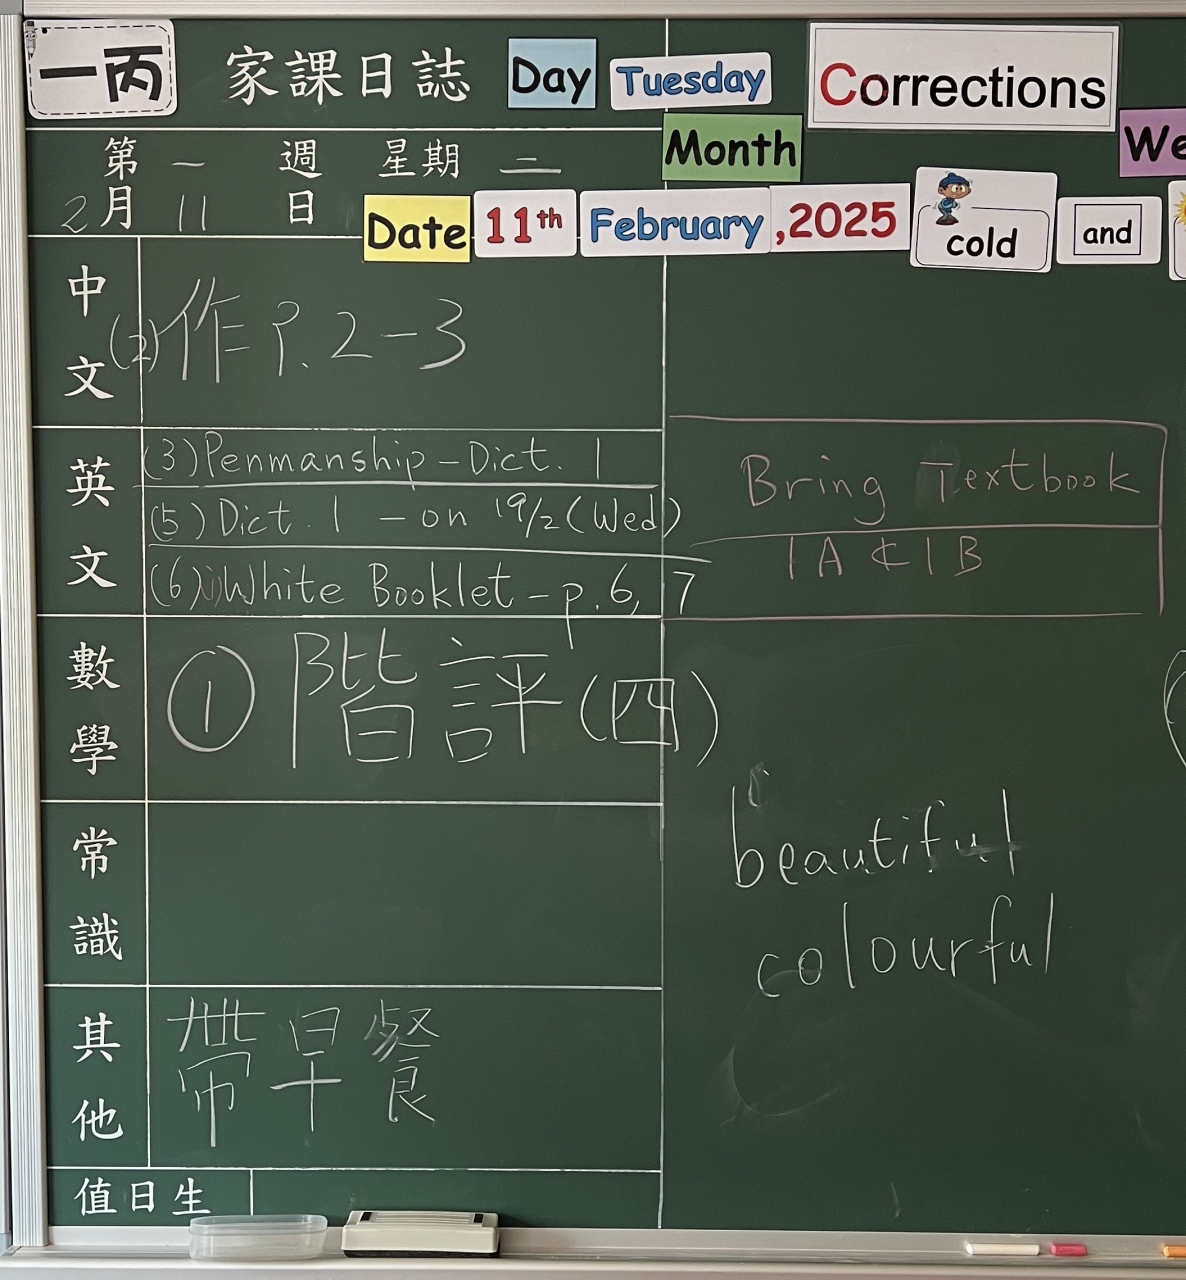 一丙 家課日誌 Day Tuesday Corrections
第 一 週 星期 二 Month
2月 11 日 Date 11th February ,2025 cold and
中文 (2) 作 P. 2-3
英文 (3) Penmanship - Dict. 1
(5) Dict. 1 - on 19/2 (Wed)
(6)i) White Booklet - p.6, 7
Bring Textbook
1A & 1B
數學 ① 階評(四)
beautiful
colourful
常識
其他 帶早餐
值日生